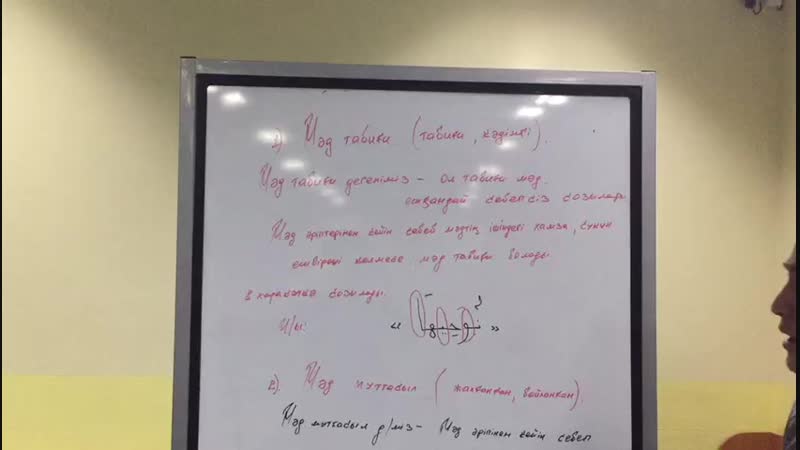 1) Мәд табиғи (табиғи, кәдімгі).
Мәд табиғи дегеніміз – Ол табиғи мәд.
ешқандай себепсіз созылады
Мәд әріптерінен кейін себеб мәдтің ішіндегі хамза, сукун
ешбіреуі келмесе мәд табиғи болады
2 харакатқа созылады.
М/ы: « نُوحِيهَا »
2). Мәд муттасыл (жалғанған, байланған)
Мәд муттасыл д/міз – Мәд әріпінен кейін себеп